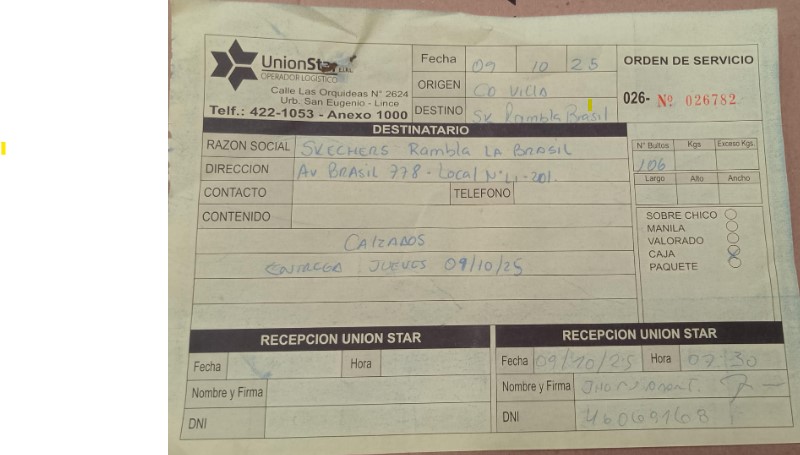 UnionStar E.I.R.L.
OPERADOR LOGISTICO
Calle Las Orquideas N° 2624
Urb. San Eugenio - Lince
Telf.: 422-1053 - Anexo 1000
Fecha 09 10 25
ORIGEN CD Villa
DESTINO SK Rambla Brasil
ORDEN DE SERVICIO
026- Nº 026782
DESTINATARIO
RAZON SOCIAL SKECHERS Rambla LA BRASIL
DIRECCION AV BRASIL 778 - Local N° L1-201.
CONTACTO TELEFONO
CONTENIDO
CALZADOS
ENTREGA JUEVES 09/10/25
N° Bultos Kgs Exceso Kgs.
106
Largo Alto Ancho
SOBRE CHICO
MANILA
VALORADO
CAJA
PAQUETE
RECEPCION UNION STAR
Fecha Hora
Nombre y Firma
DNI
RECEPCION UNION STAR
Fecha 09/10/25 Hora 07:30
Nombre y Firma
DNI